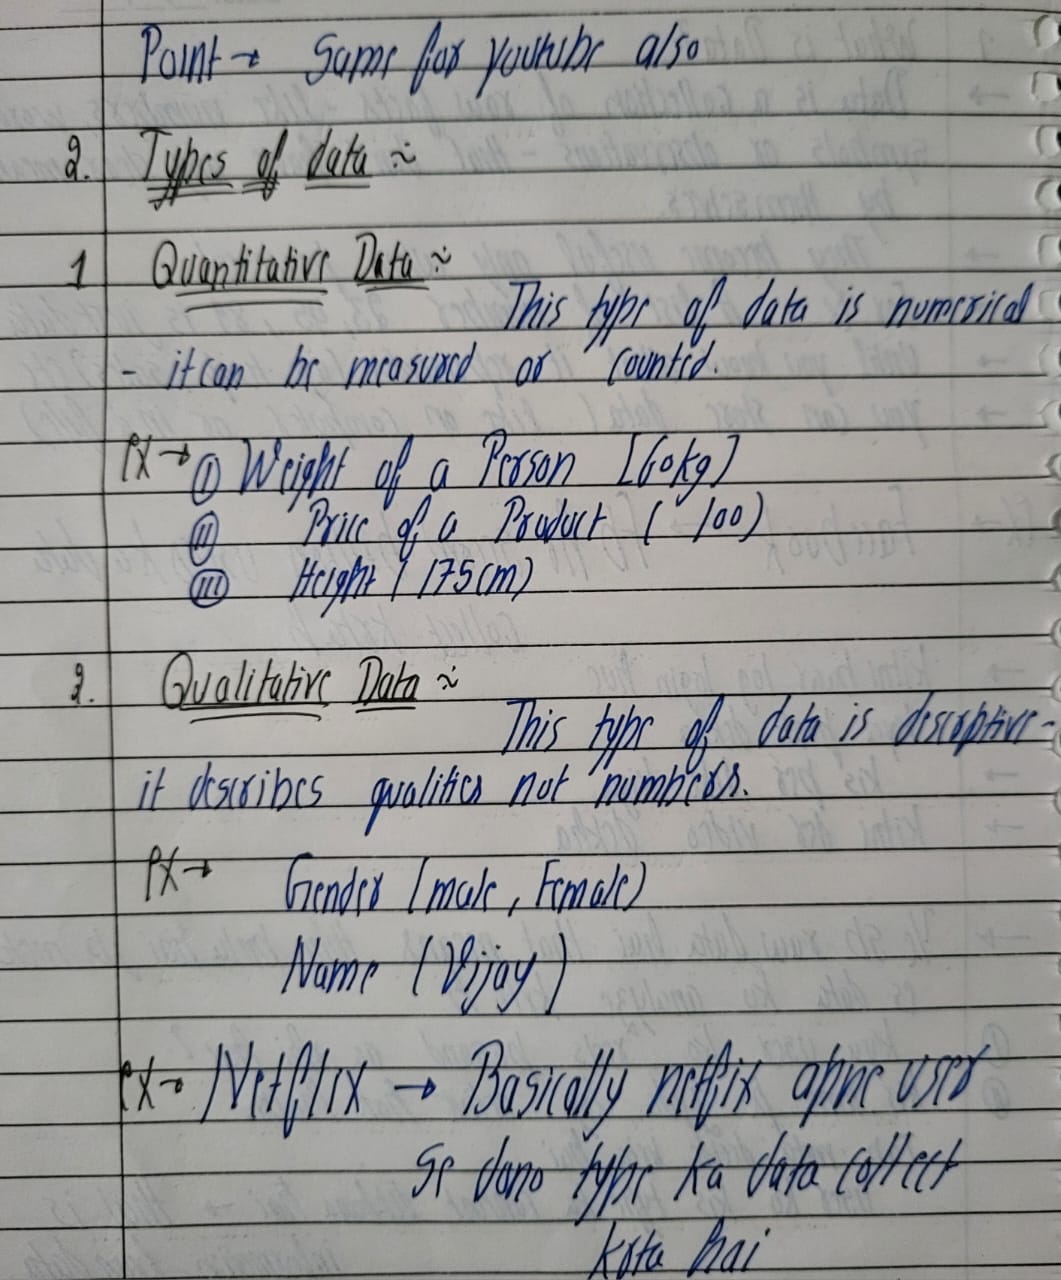 Point → Same for youtube also
2. Types of data ~
1 Quantitative Data ~
This type of data is numerical
- it can be measured or counted.
ex → (I) Weight of a Person [60kg]
(II) Price of a Product ( 100)
(III) Height [175cm)
2. Qualitative Data ~
This type of data is descriptive -
it describes qualities not numbers.
ex → Gender [male, Female)
Name (Vijay)
ex → Netflix → Basically netflix apne user
se dono type ka data collect
krta hai